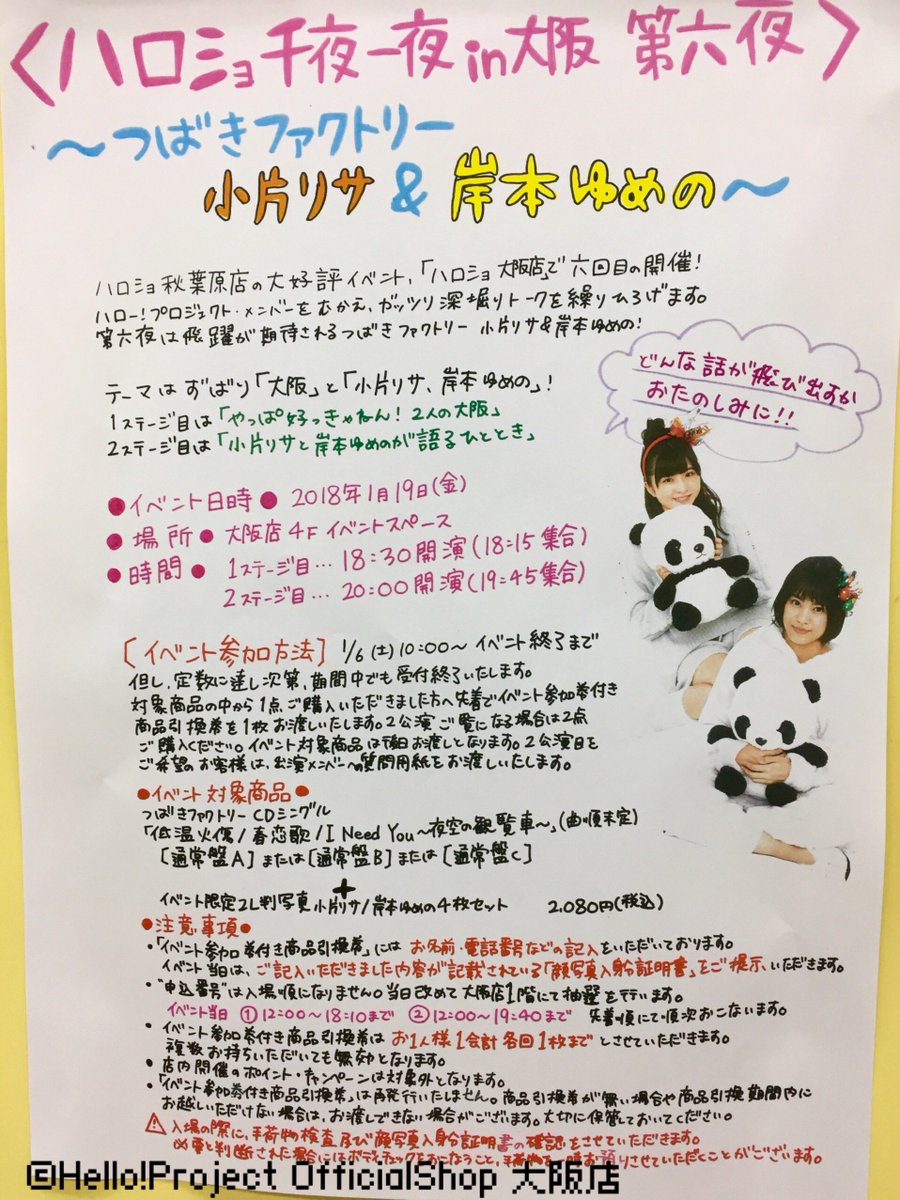 〈ハロショ千夜一夜in大阪 第六夜〉
～つばきファクトリー
小片リサ & 岸本ゆめの～
ハロショ秋葉原店の大好評イベント、「ハロショ大阪店」で六回目の開催!
ハロー!プロジェクト・メンバーをむかえ、ガッツリ深堀りトークを繰りひろげます。
第六夜は飛躍が期待されるつばきファクトリー 小片リサ&岸本ゆめの!
どんな話が飛び出すか
おたのしみに!!
テーマはずばり「大阪」と「小片リサ、岸本ゆめの」!
1ステージ目は「やっぱ好っきゃねん! 2人の大阪」
2ステージ目は「小片リサと岸本ゆめのが語るひととき」
●イベント日時● 2018年1月19日(金)
●場所● 大阪店4F イベントスペース
●時間● 1ステージ目…18:30開演(18:15集合)
2ステージ目…20:00開演(19:45集合)
[イベント参加方法] 1/6(土)10:00～イベント終了まで
但し、定数に達し次第、期間中でも受付終了いたします。
対象商品の中から1点ご購入いただきました方へ先着でイベント参加券付き
商品引換券を1枚お渡しいたします。2公演ご覧になる場合は2点
ご購入ください。イベント対象商品は後日お渡しとなります。2公演目を
ご希望のお客様は、出演メンバーへの質問用紙をお渡しいたします。
●イベント対象商品●
つばきファクトリー CDシングル
「低温火傷/春恋歌/I Need You～夜空の観覧車～」(曲順未定)
[通常盤A]または[通常盤B]または[通常盤C]
+
イベント限定2L判写真 小片リサ/岸本ゆめの4枚セット 2,080円(税込)
●注意事項●
・「イベント参加券付き商品引換券」には お名前・電話番号などの記入をいただいております。
イベント当日は、ご記入いただきました内容が記載されている「顔写真入身分証明書」をご提示いただきます。
・"申込番号"は入場順になりません。当日改めて大阪店1階にて抽選を行います。
イベント当日 ①12:00～18:10まで ②12:00～19:40まで 先着順にて順次おこないます。
・イベント参加券付き商品引換券は お1人様1会計各回1枚まで とさせていただきます。
複数お持ちいただいても無効となります。
・店内開催のポイント・キャンペーンは対象外となります。
・「イベント参加券付き商品引換券」は再発行いたしません。商品引換券が無い場合や商品引換期間内に
お越しいただけない場合は、お渡しできない場合がございます。大切に保管しておいてください。
⚠入場の際に、手荷物検査及び顔写真入身分証明書の確認をさせていただきます。
必要と判断された場合にはボディチェックをおこなうこと、手荷物を一時お預りさせていただくことがございます。
©Hello!Project OfficialShop 大阪店